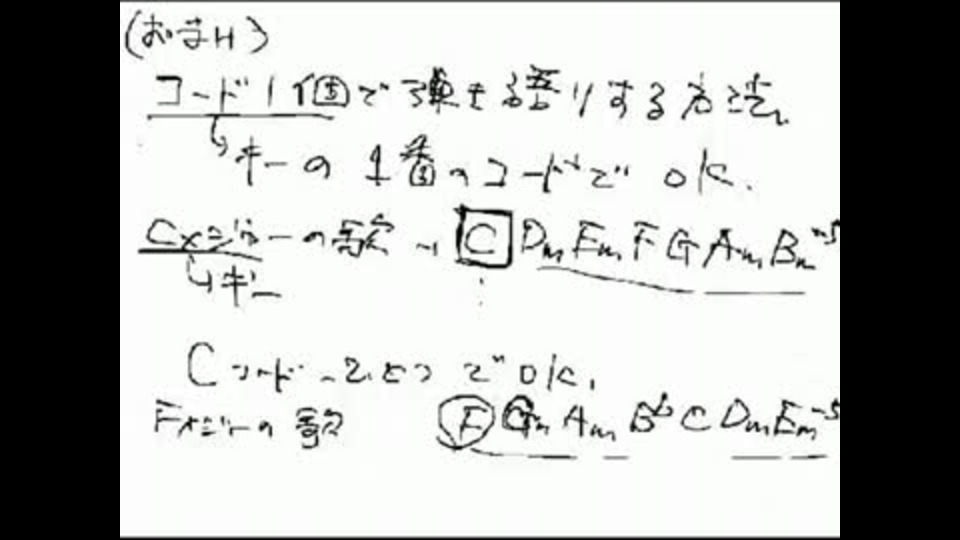 (おまけ)
コード1個で弾き語りする方法
↳キーの1番のコードでOK.
Cメジャーの歌→ C Dm Em F G Am Bm-5
↳キー
Cコードひとつで OK.
Fメジャーの歌 F Gm Am B♭ C Dm Em-5